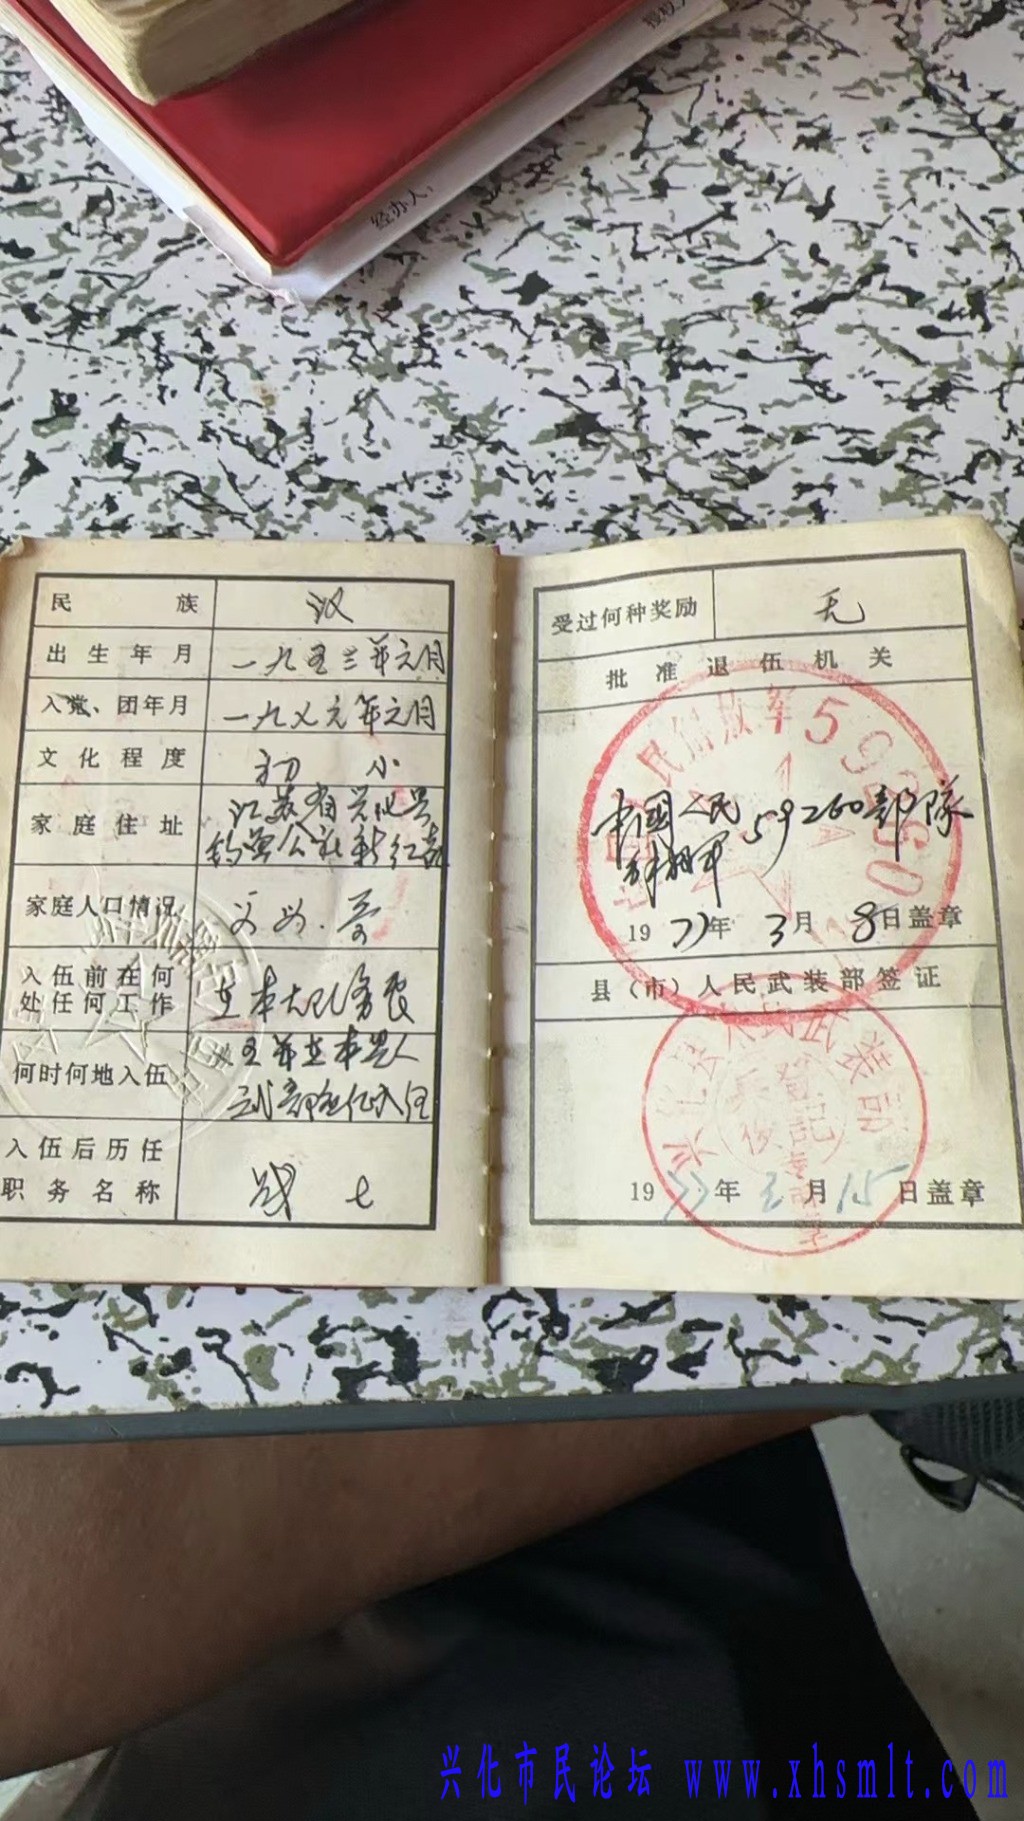 授权人
经办人:
民族 汉
出生年月 一九五三年元月
入党、团年月 一九七六年元月
文化程度 初小
家庭住址 江苏省兴化县
公社新红
家庭人口情况 父
入伍前在何
处任何工作 在本大队务农
何时何地入伍 年在本县人
武部应征入伍
入伍后历任
职务名称 战士
受过何种奖励 无
批准退伍机关
民解放军59260
中国人民解放军59260部隊
19 年3月8日盖章
县(市)人民武装部签证
兴化县人民武装部
兵役登记专用章
19 年三月15日盖章
兴化市民论坛 www.xhsmlt.com